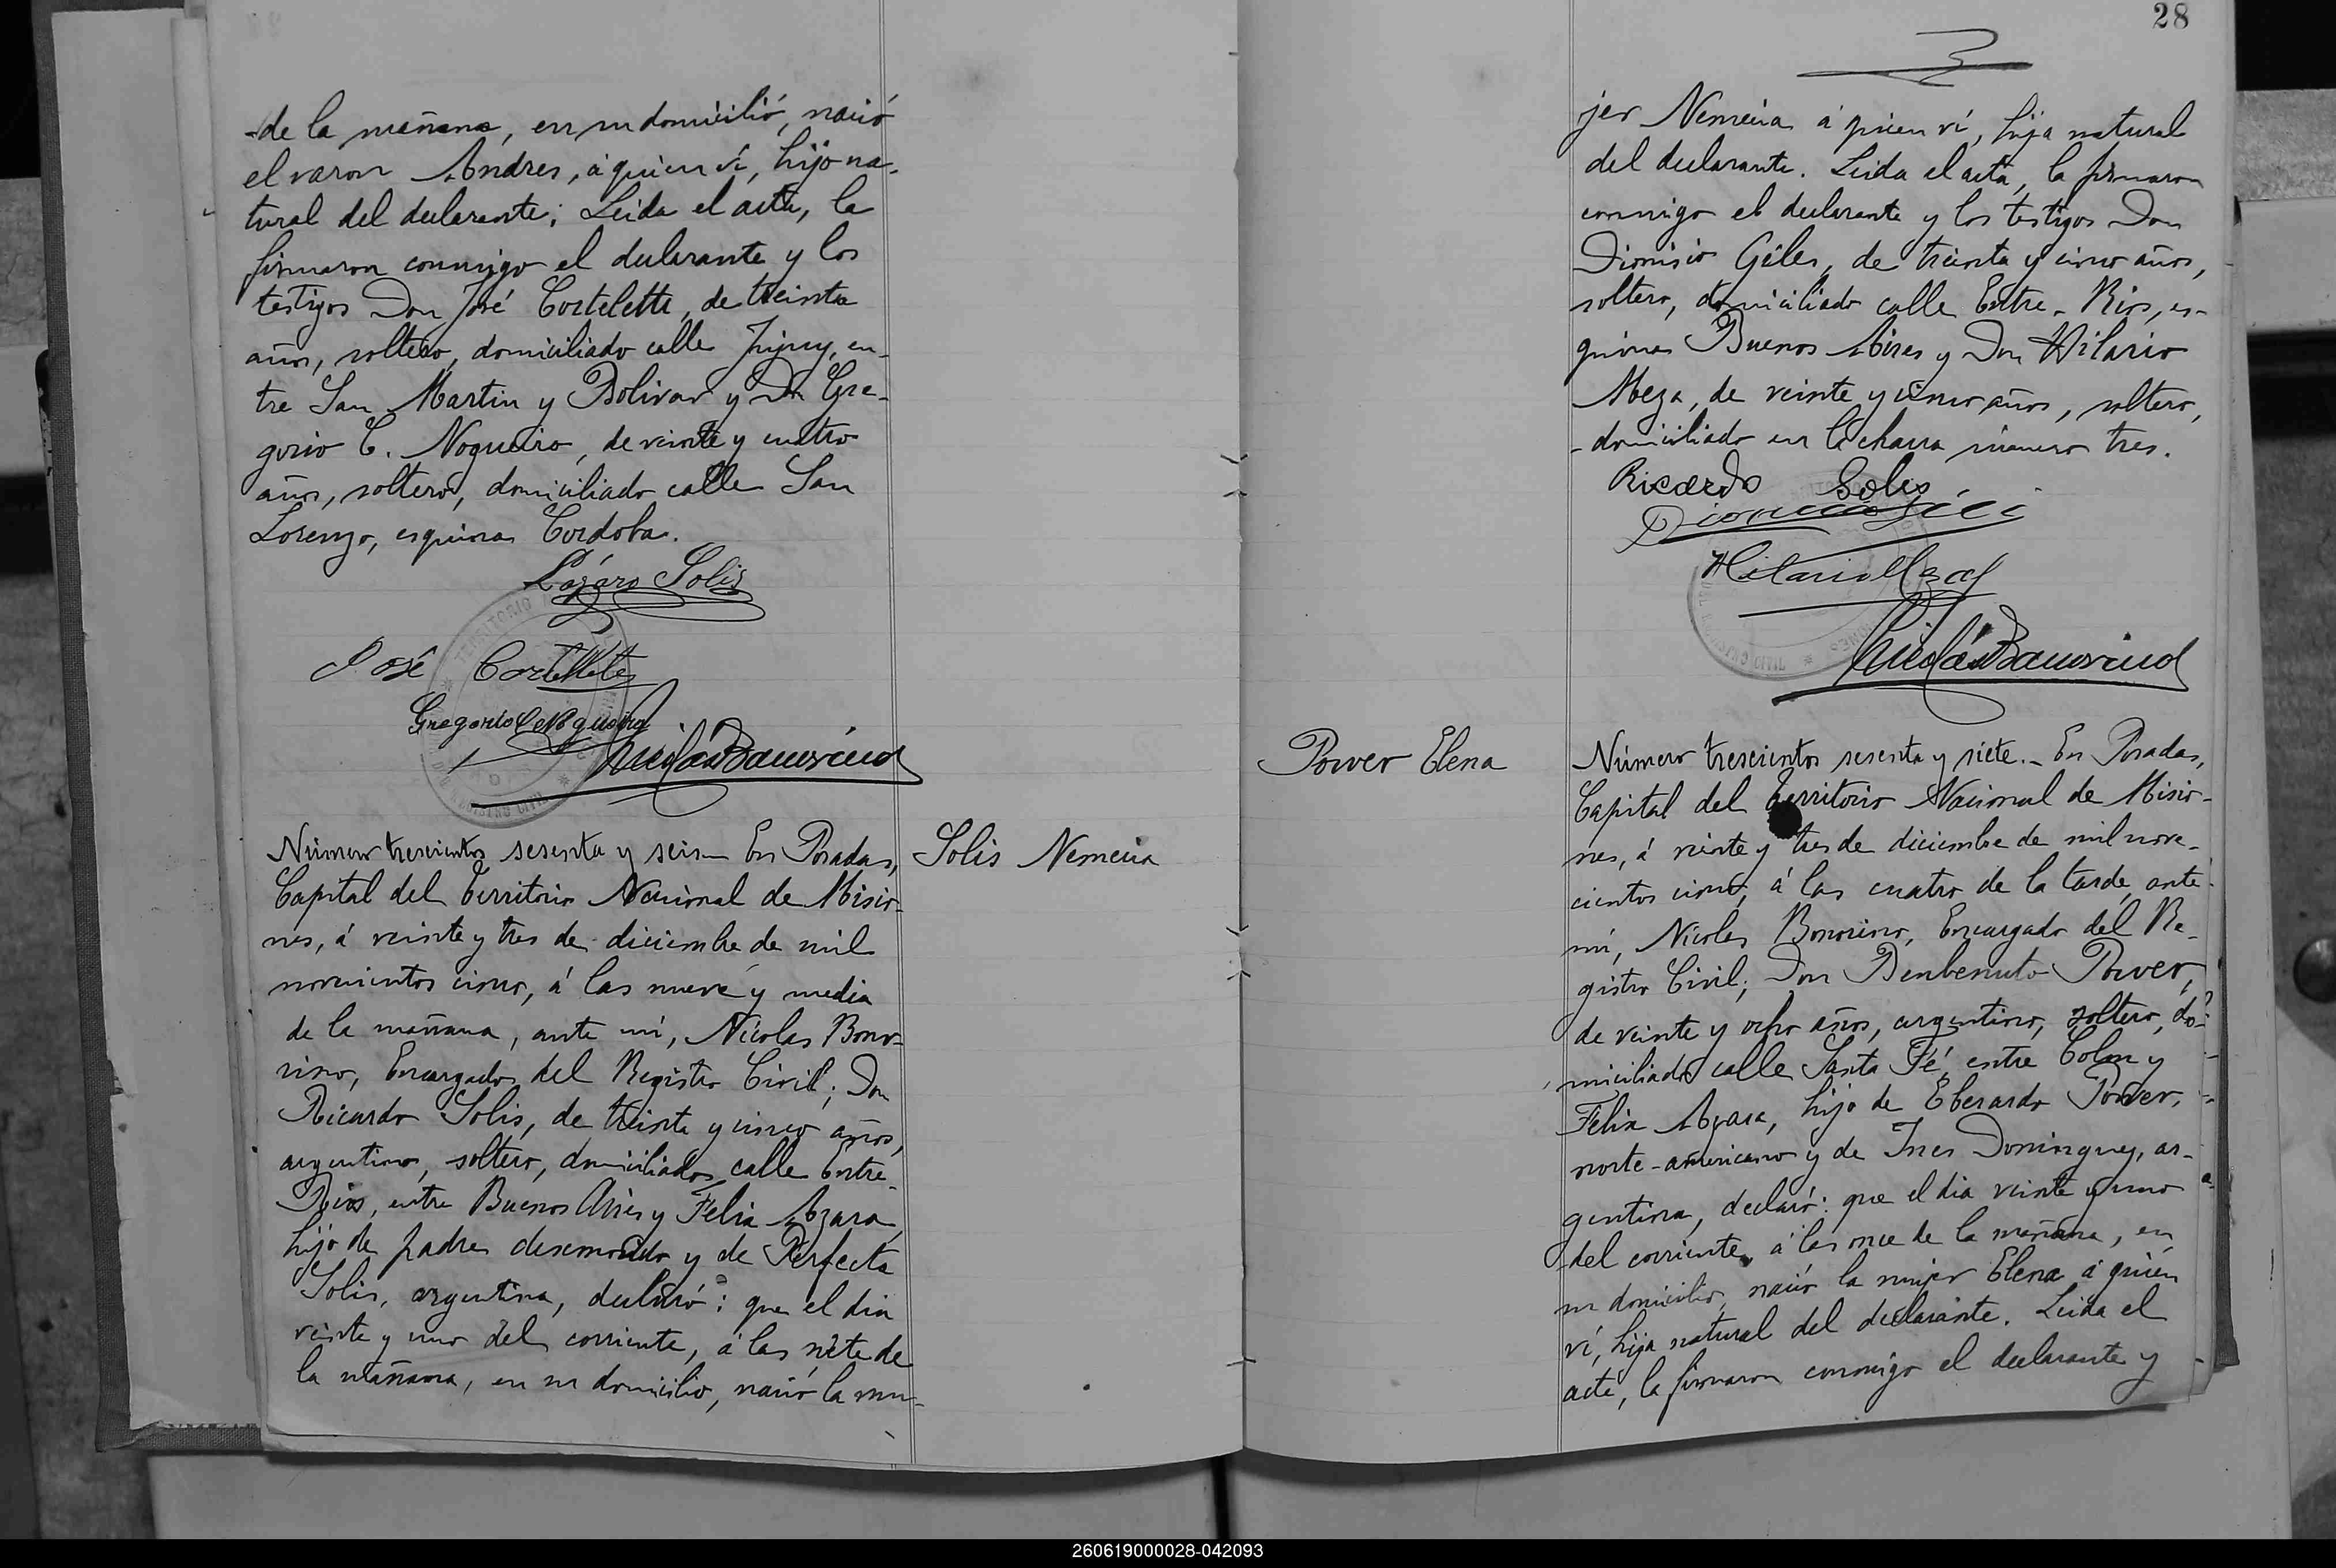 de la mañana, en su domicilio, nació
el varon Andres, á quien ví, hijo na-
tural del declarante; Leida el acta, la
firmaron conmigo el declarante y los
testigos Don José Cortelette, de treinta
años, soltero, domiciliado calle Jujuy, en-
tre San Martin y Bolivar y Don Gre-
gorio C. Nogueiro, de veinte y cuatro
años, soltero, domiciliado calle San
Lorenzo, esquina Cordoba.
Lázaro Solis
José Cortellete
Gregorio C Nogueira
Nicolás Bonorino
Número trescientos sesenta y seis. En Posadas,
Capital del Territorio Nacional de Misio-
nes, á veinte y tres de diciembre de mil
novecientos cinco, á las nueve y media
de la mañana, ante mí, Nicolas Bono-
rino, Encargado del Registro Civil; Don
Ricardo Solis, de treinta y cinco años,
argentino, soltero, domiciliado calle Entre-
Rios, entre Buenos Aires y Felix Azara,
hijo de padre desconocido y de Perfecta
Solis, argentina, declaró: que el dia
veinte y uno del corriente, á las siete de
la mañana, en su domicilio, nació la mu-
Solis Nemecia
28
jer Nemecia á quien ví, hija natural
del declarante. Leida el acta, la firmaron
conmigo el declarante y los testigos Don
Dionisio Géles, de treinta y cinco años,
soltero, domiciliado calle Entre-Rios, es-
quina Buenos Aires y Don Hilario
Meza, de veinte y cinco años, soltero,
domiciliado en la chacra número tres.
Ricardo Solis
Hilario Meza
Nicolás Bonorino
Power Elena
Número trescientos sesenta y siete.- En Posadas,
Capital del Territorio Nacional de Misio-
nes, á veinte y tres de diciembre de mil nove-
cientos cinco, á las cuatro de la tarde, ante
mí, Nicolas Bonorino, Encargado del Re-
gistro Civil; Don Benbenuto Power,
de veinte y ocho años, argentino, soltero, do-
miciliado calle Santa Fé, entre Colon y
Felix Azara, hijo de Eberardo Power,
norte-americano y de Ines Dominguez, ar-
gentina, declaró: que el dia veinte y uno
del corriente, á las once de la mañana, en
su domicilio, nació la mujer Elena á quien
ví, hija natural del declarante. Leida el
acta, la firmaron conmigo el declarante y
260619000028-042093